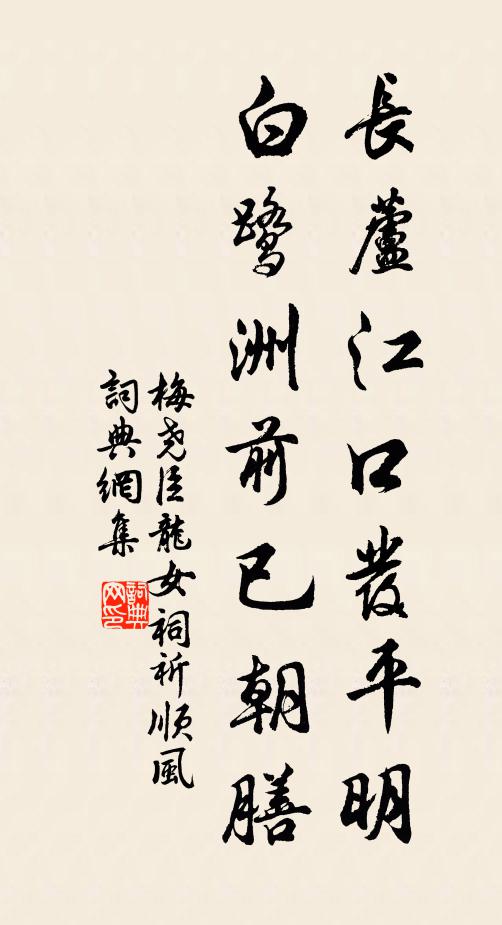 長蘆江口發平明
白鷺洲前已朝膳
梅堯臣龍女祠祈順風
詞典網集
詞典
网印